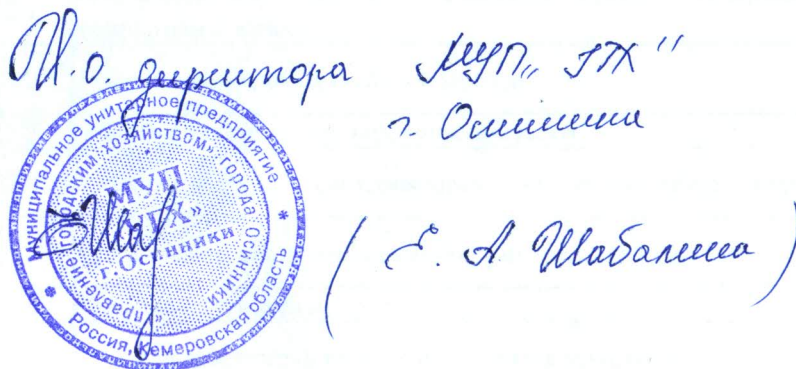 И.о. директора МУП „УГХ"
г. Осинники
Муниципальное унитарное предприятие
«Управление городским хозяйством» города Осинники
МУП
«УГХ»
г.Осинники
Россия, Кемеровская область
( Е. А Шабалина )